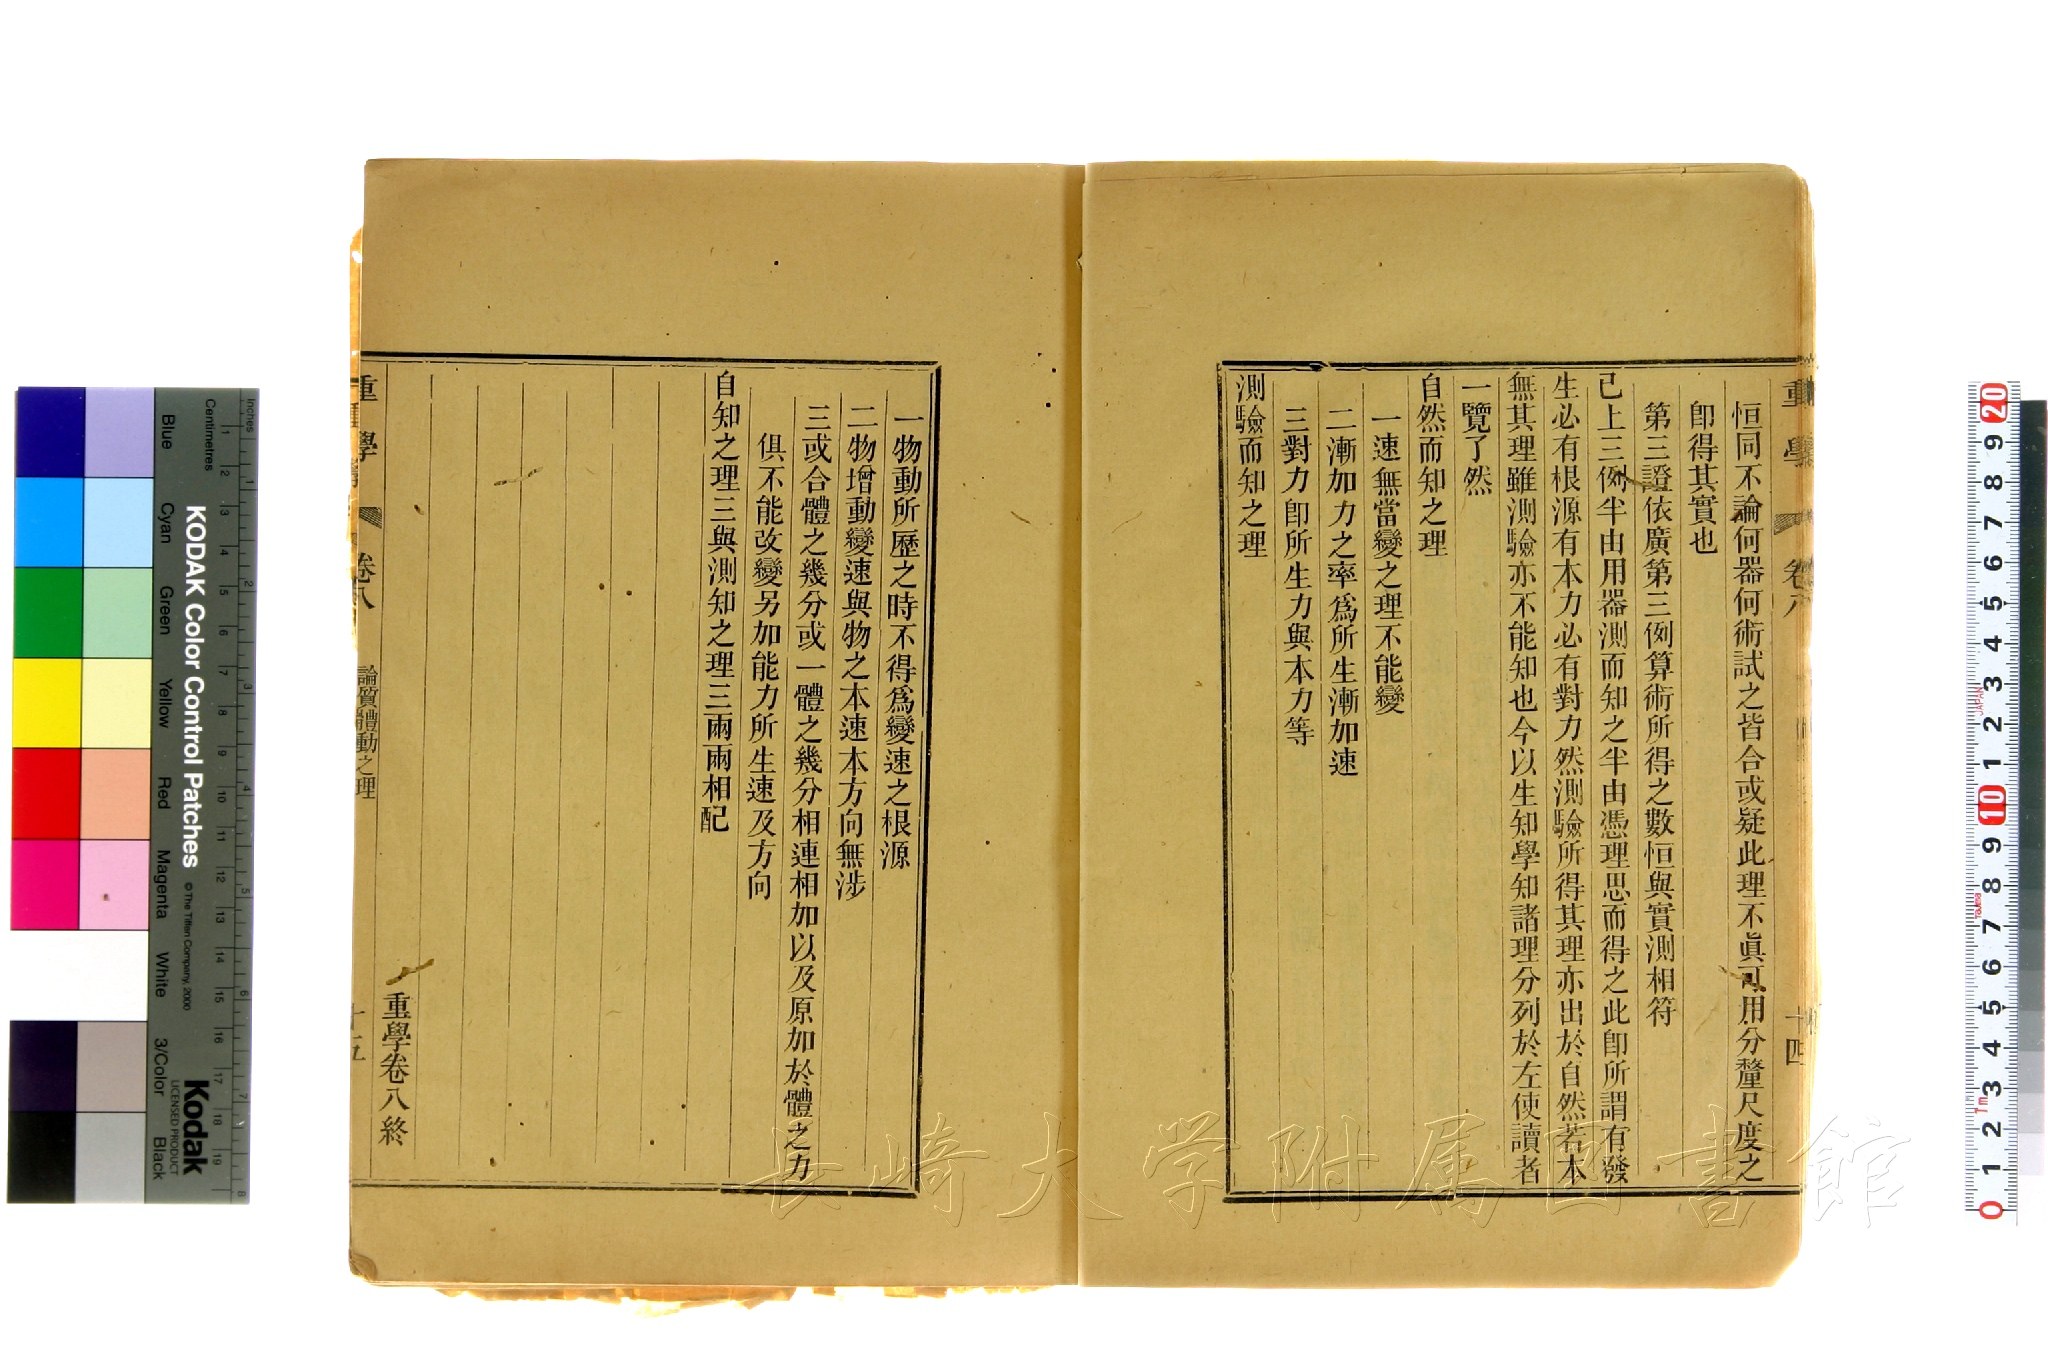 恒同不論何器何術試之皆合或疑此理不眞可用分釐尺度之
卽得其實也
第三證依廣第三例算術所得之數恒與實測相符
已上三例半由用器測而知之半由憑理思而得之此卽所謂有發
生必有根源有本力必有對力然測驗所得其理亦出於自然若本
無其理雖測驗亦不能知也今以生知學知諸理分列於左使讀者
一覽了然
自然而知之理
一速無當變之理不能變
二漸加力之率爲所生漸加速
三對力卽所生力與本力等
測驗而知之理
一物動所歷之時不得爲變速之根源
二物增動變速與物之本速本方向無涉
三或合體之幾分或一體之幾分相連相加以及原加於體之力
俱不能改變另加能力所生速及方向
自知之理三與測知之理三兩兩相配
重學卷八終
重學
卷八
論質體動之理
十五
重學
卷八
十四
長崎大学附属図書館
KODAK Color Control Patches
© The Tiffen Company, 2000
Kodak
LICENSED PRODUCT
Inches
Centimetres
Blue
Cyan
Green
Yellow
Red
Magenta
White
3/Color
Black
JAPAN
Tajima
1m